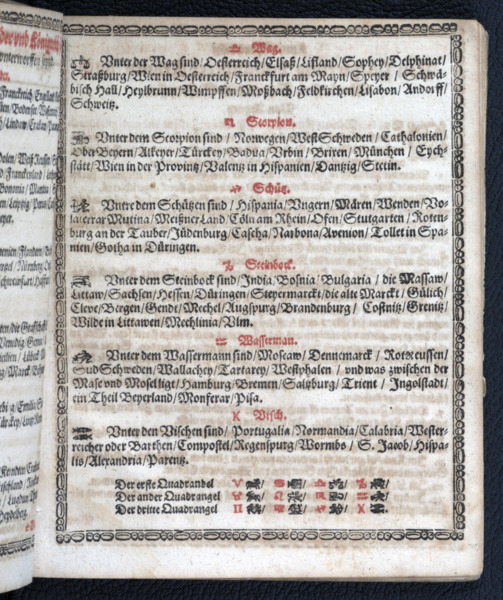 ♎ Wag.
Vnter der Wag sind/Oesterreich/Elsaß/Lifland/Sophey/Delphinat/
Straßburg/Wien in Oesterreich/Franckfurt am Mayn/Speyer/Schwä-
bisch Hall/Heylbrunn/Wimpffen/Moßbach/Feldkirchen/Lisabon/Andorff/
Schweitz.
♏ Scorpion.
Vnter dem Scorpion sind/Norwegen/WestSchweden/Cathalonien/
OberBeyern/Alkeyer/Türckey/Badua/Vrbin/Brixen/München/Eych-
stätt/Wien in der Provintz/Valentz in Hispanien/Dantzig/Stetin.
♐ Schütz.
Vnter dem Schützen sind/Hispania/Vngern/Mären/Wenden/Vo-
laterrar Mutina/Meißner Land/Cöln am Rhein/Ofen/Stutgarten/Roten-
burg an der Tauber/Jüdenburg/Cascha/Narbona/Avenion/Tollet in Spa-
nien/Gotha in Düringen.
♑ Steinbock.
Vnter dem Steinbock sind/India/Bosnia/Bulgaria/die Massaw/
Littaw/Sachsen/Hessen/Düringen/Steyermarckt/die alte Marckt/Gülich/
Cleve/Bergen/Gendt/Mechel/Augspurg/Brandenburg/Costnitz/Grenitz/
Wilde in Littawen/Mechlinia/Vlm.
♒ Wasserman.
Vnter dem Wassermann sind/Moscaw/Dennemarck/Rotreussen/
SudSchweden/Wallachey/Tartarey/Westphalen/vnd was zwischen der
Mase vnd Mosel ligt/Hamburg/Bremen/Saltzburg/Trient/Ingolstadt/
ein Theil Beyerland/Monferar/Pisa.
♓ Visch.
Vnter den Vischen sind/Portugalia/Normandia/Calabria/Wester-
reicher oder Barthen/Compostel/Regenspurg/Wormbs/S. Jacob/Hispa-
lis/Alexandria/Parentz.
Der erste Quadrangel ♈ / ♋ / ♎ / ♑ /
Der ander Quadrangel ♉ / ♌ / ♏ / ♒ /
Der dritte Quadrangel ♊ / ♍ / ♐ / ♓ /